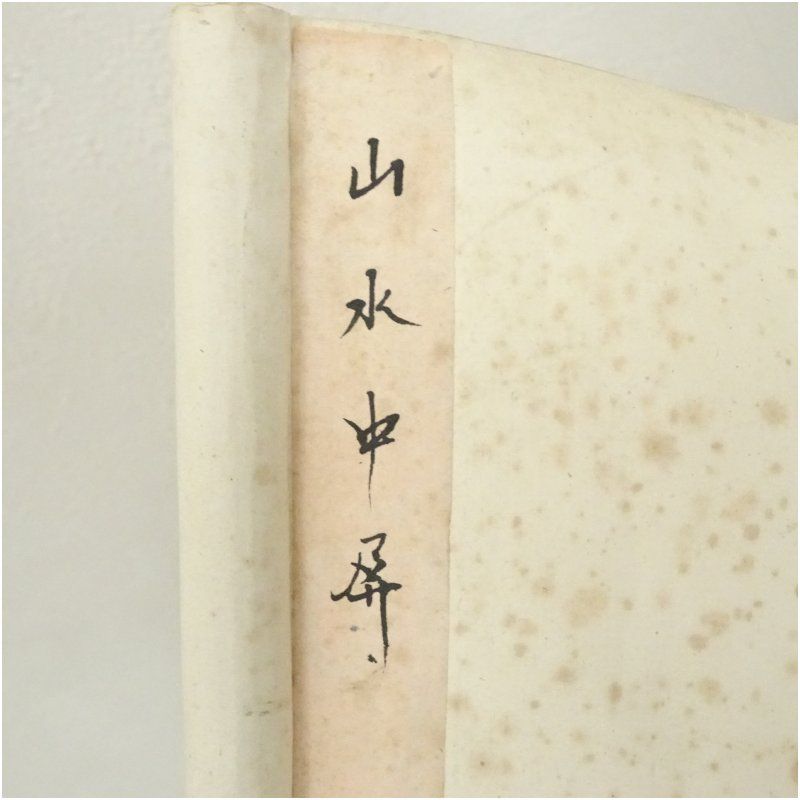 山水中屏